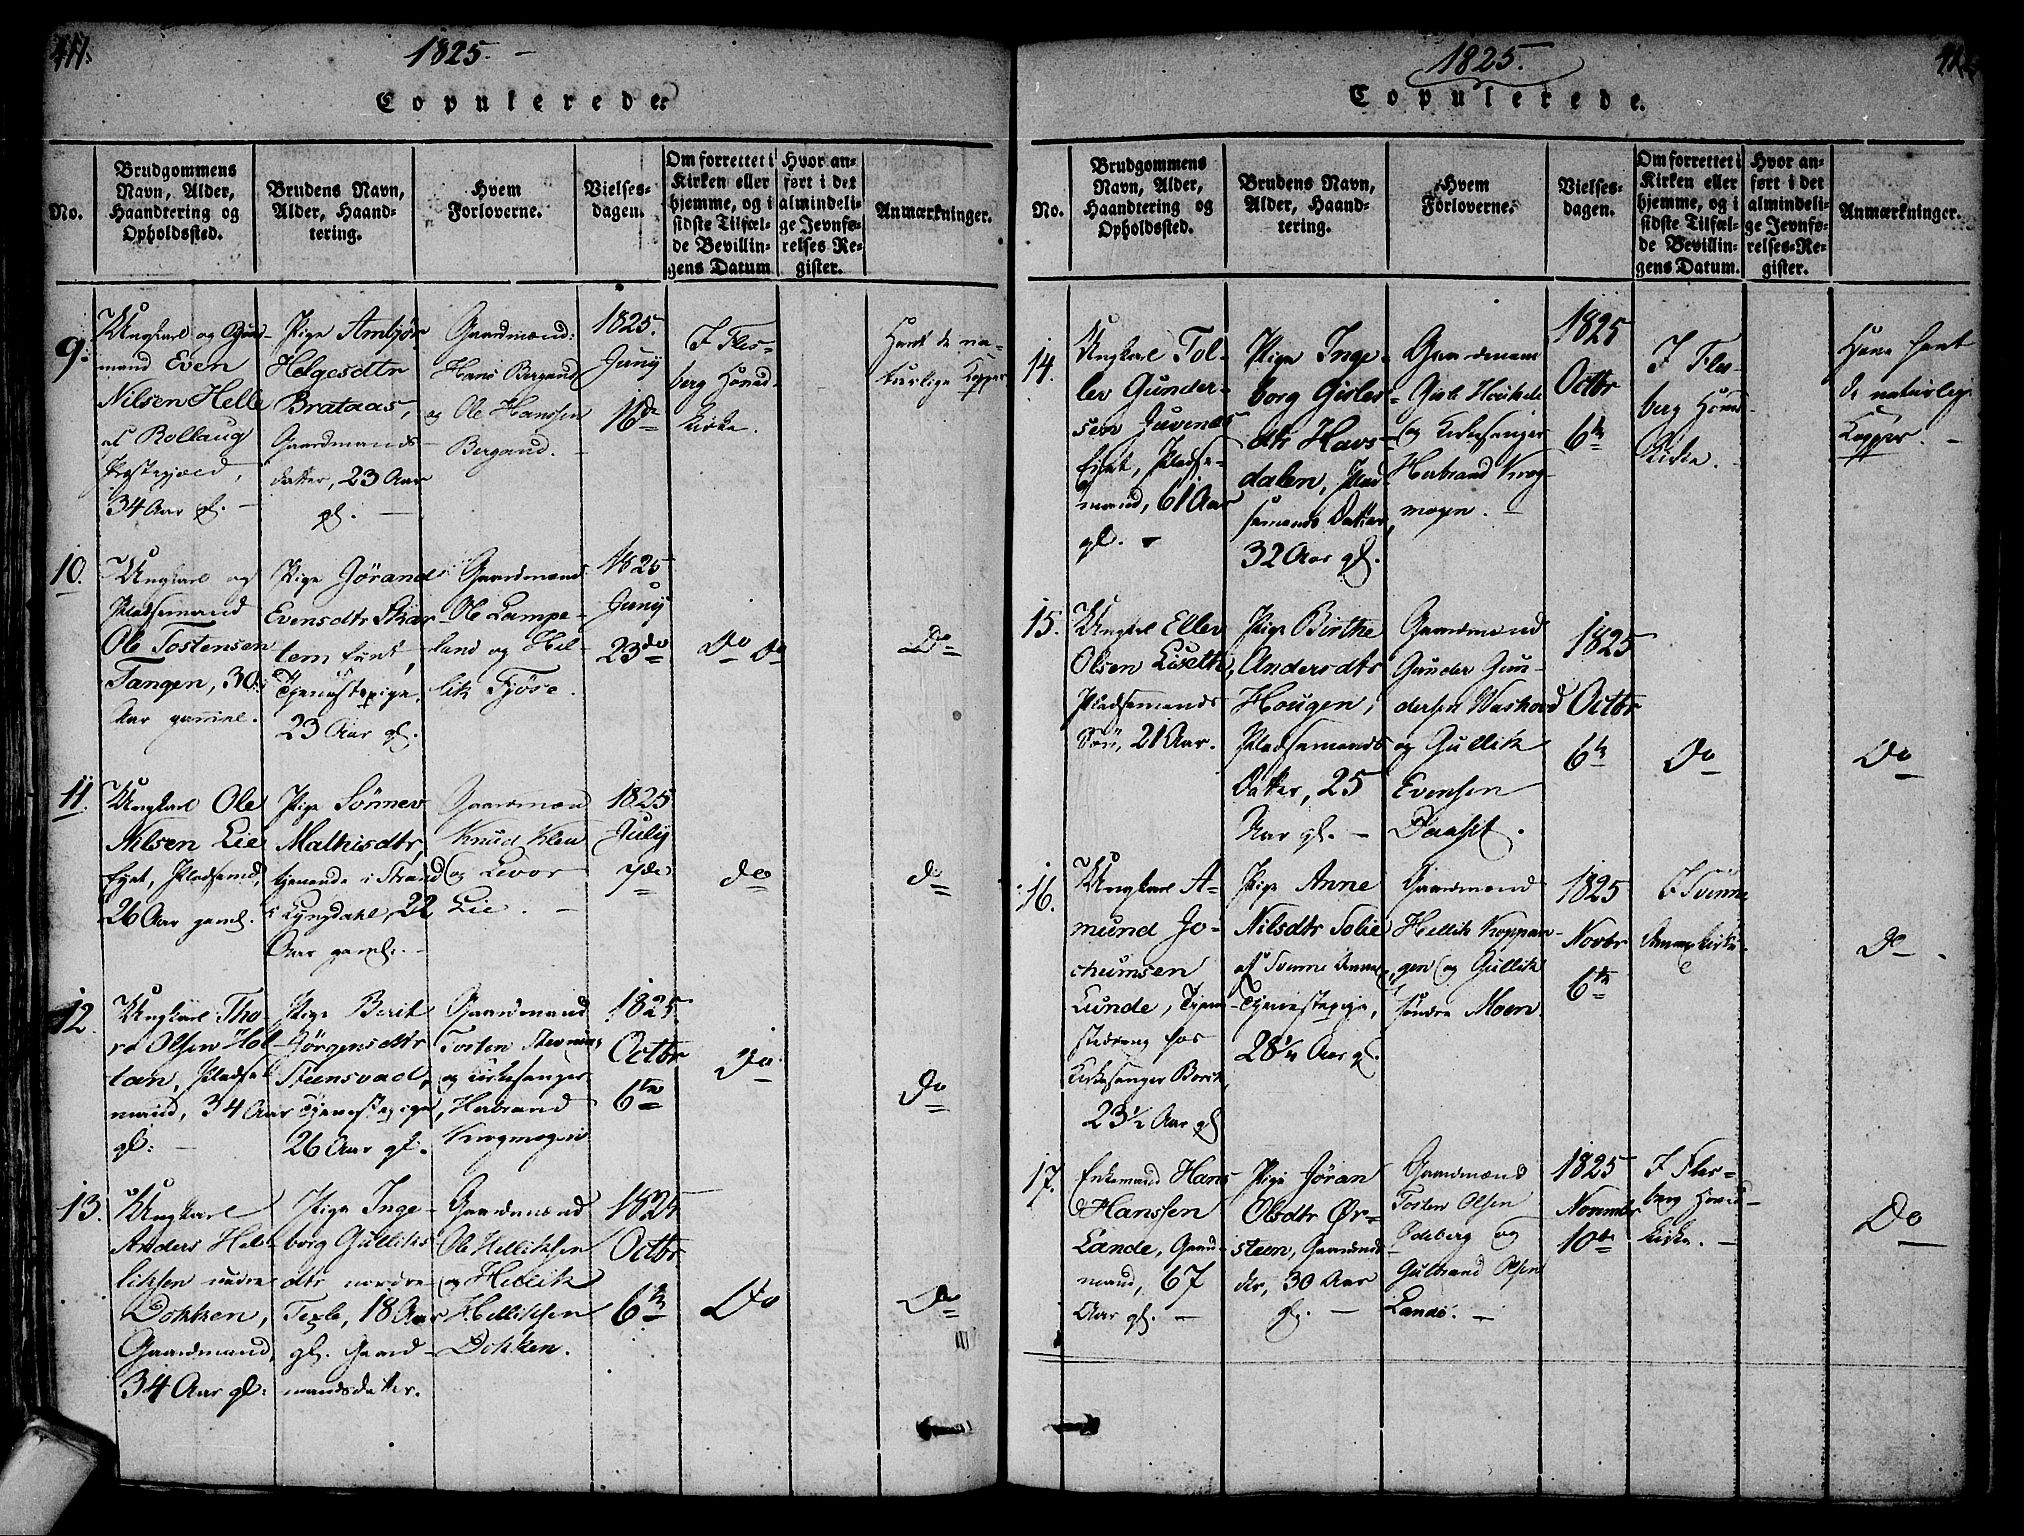 411.
1825.
Copulerede.
No.
Brudgommens
Navn, Alder,
Haandtering og
Opholdssted.
Brudens Navn,
Alder, Haand-
tering.
Hvem
Forloverne.
Vielses-
dagen.
Om forrettet i
Kirken eller
hjemme, og i
sidste Tilfæl-
de Bevillin-
gens Datum
Hvor an-
ført i det
almindeli-
ge Jevnfø-
relses Re-
gister.
Anmærkninger.
9.
Ungkarl og
mand Even
Nilsen Helle
af Rollaug
Præstegjæld,
34 Aar gl.
Pige Ambjør
Helgesdtr
Brataas,
Gaardmands
datter, 23 Aar
gl.
Gaardmænd:
Hans Bergand
og Ole Hanssen
Bergand.
1825.
Juny
16de
I Fles-
berg Hovid
kirke.
Havt de na-
turlige Kopper
10.
Ungkarl og
Pladsemand
Ole Tostensen
Tangen, 30
Aar gammel.
Pige Jørand
Evensdtr Skar
tem Eyet,
Tjenestepige,
23 Aar gl.
Gaardmænd
Ole Lampe-
land og Hel-
lik Fjøse.
1825
Juny
23de
Do Do
Do
11.
Ungkarl Ole
Nilsen Lie
Eyet, Pladsemd,
26 Aar gaml.
Pige Sønnev
Mathisdtr,
tjenende i Strand
i Lyngdahl, 22
Aar gaml.
Gaardmænd
Knud Kleu
og Levor
Lie.
1825
July
7de
do
do
12.
Ungkarl Tho-
re Olsen Hol-
tan, Pladse
mand, 34 Aar
gl:
Pige Berit
Jørgensdtr
Steensvad,
Tjenestepige,
26 Aar gl.
Gaardmand
Tosten
og Kirkesanger
Herbrand
Krogmogen
1825.
Octbr
6te
Do
Do
13.
Ungkarl
Anders Hel-
liksen nedre
Dokken,
Gaardmand,
34 Aar gl:
Pige Inge-
borg Gulliks
dtr nordre
Texle, 18 Aar
gl. Gaard-
mandsdatter.
Gaardmænd
Ole Helliksen
og Hellik
Helliksen
Dokken.
1825
Octbr
6te
Do
Do
1825.
412
Copulerede.
No.
Brudgommens
Navn, Alder,
Haandtering og
Opholdssted.
Brudens Navn,
Alder, Haand-
tering.
Hvem
Forloverne.
Vielses-
dagen.
Om forrettet i
Kirken eller
hjemme, og i
sidste Tilfæl-
de Bevillin-
gens Datum.
Hvor an-
ført i det
almindeli-
ge Jevnfø-
relses-Re-
gister.
Anmærkninger.
14.
Ungkarl Tol-
lev Gunder-
sen Juvenæs
Eyet, Pladse-
mand, 61 Aar
gl.
Pige Inge-
borg Gisles-
dtr Havs-
dalen, Plad-
semands Datter,
32 Aar gl.
Gaardmænd
Gisle
og Kirkesanger
Herbrand Krog-
mogen.
1825
Octbr
6te
I Fles-
berg Hovid
Kirke.
Have havt
de naturlige
Kopper.
15.
Ungkarl Ellev
Olsen Liseth,
Pladsemands
Søn, 21 Aar.
Pige Birthe
Andersdtr
Hougen,
Pladsemands
Datter, 25
Aar gl.
Gaardmænd
Gunder Gun-
dersen Waskoved
og Gullik
Evensen
Daaset.
1825
Octbr
6te
Do
Do
16.
Ungkarl A-
mund Jo-
chumsen
Lunde, Tjene-
stedreng hos
Kirkesanger
23½ Aar gl
Pige Anne
Nilsdtr Tolie
af Svenne Annex
Tjenestepige,
28½ Aar gl.
Gaardmænd
Hellik Koppan-
gen og Gullik
søndre Moen.
1825
Novbr
6te
I Svenne
Annexkirke
Do
17.
Enkemand Hans
Hanssen
Lande, Gaard-
mand, 67
Aar gl.
Pige Jøran
Olsdtr Ør-
steen, Gaardmds-
dtr, 30 Aar
gl.
Gaardmænd
Tosten Olsen
Ødeberg og
Gulbrand Olsen
Lande.
1825
Novembr
10de
I Fles-
berg Hovid-
kirke.
Do